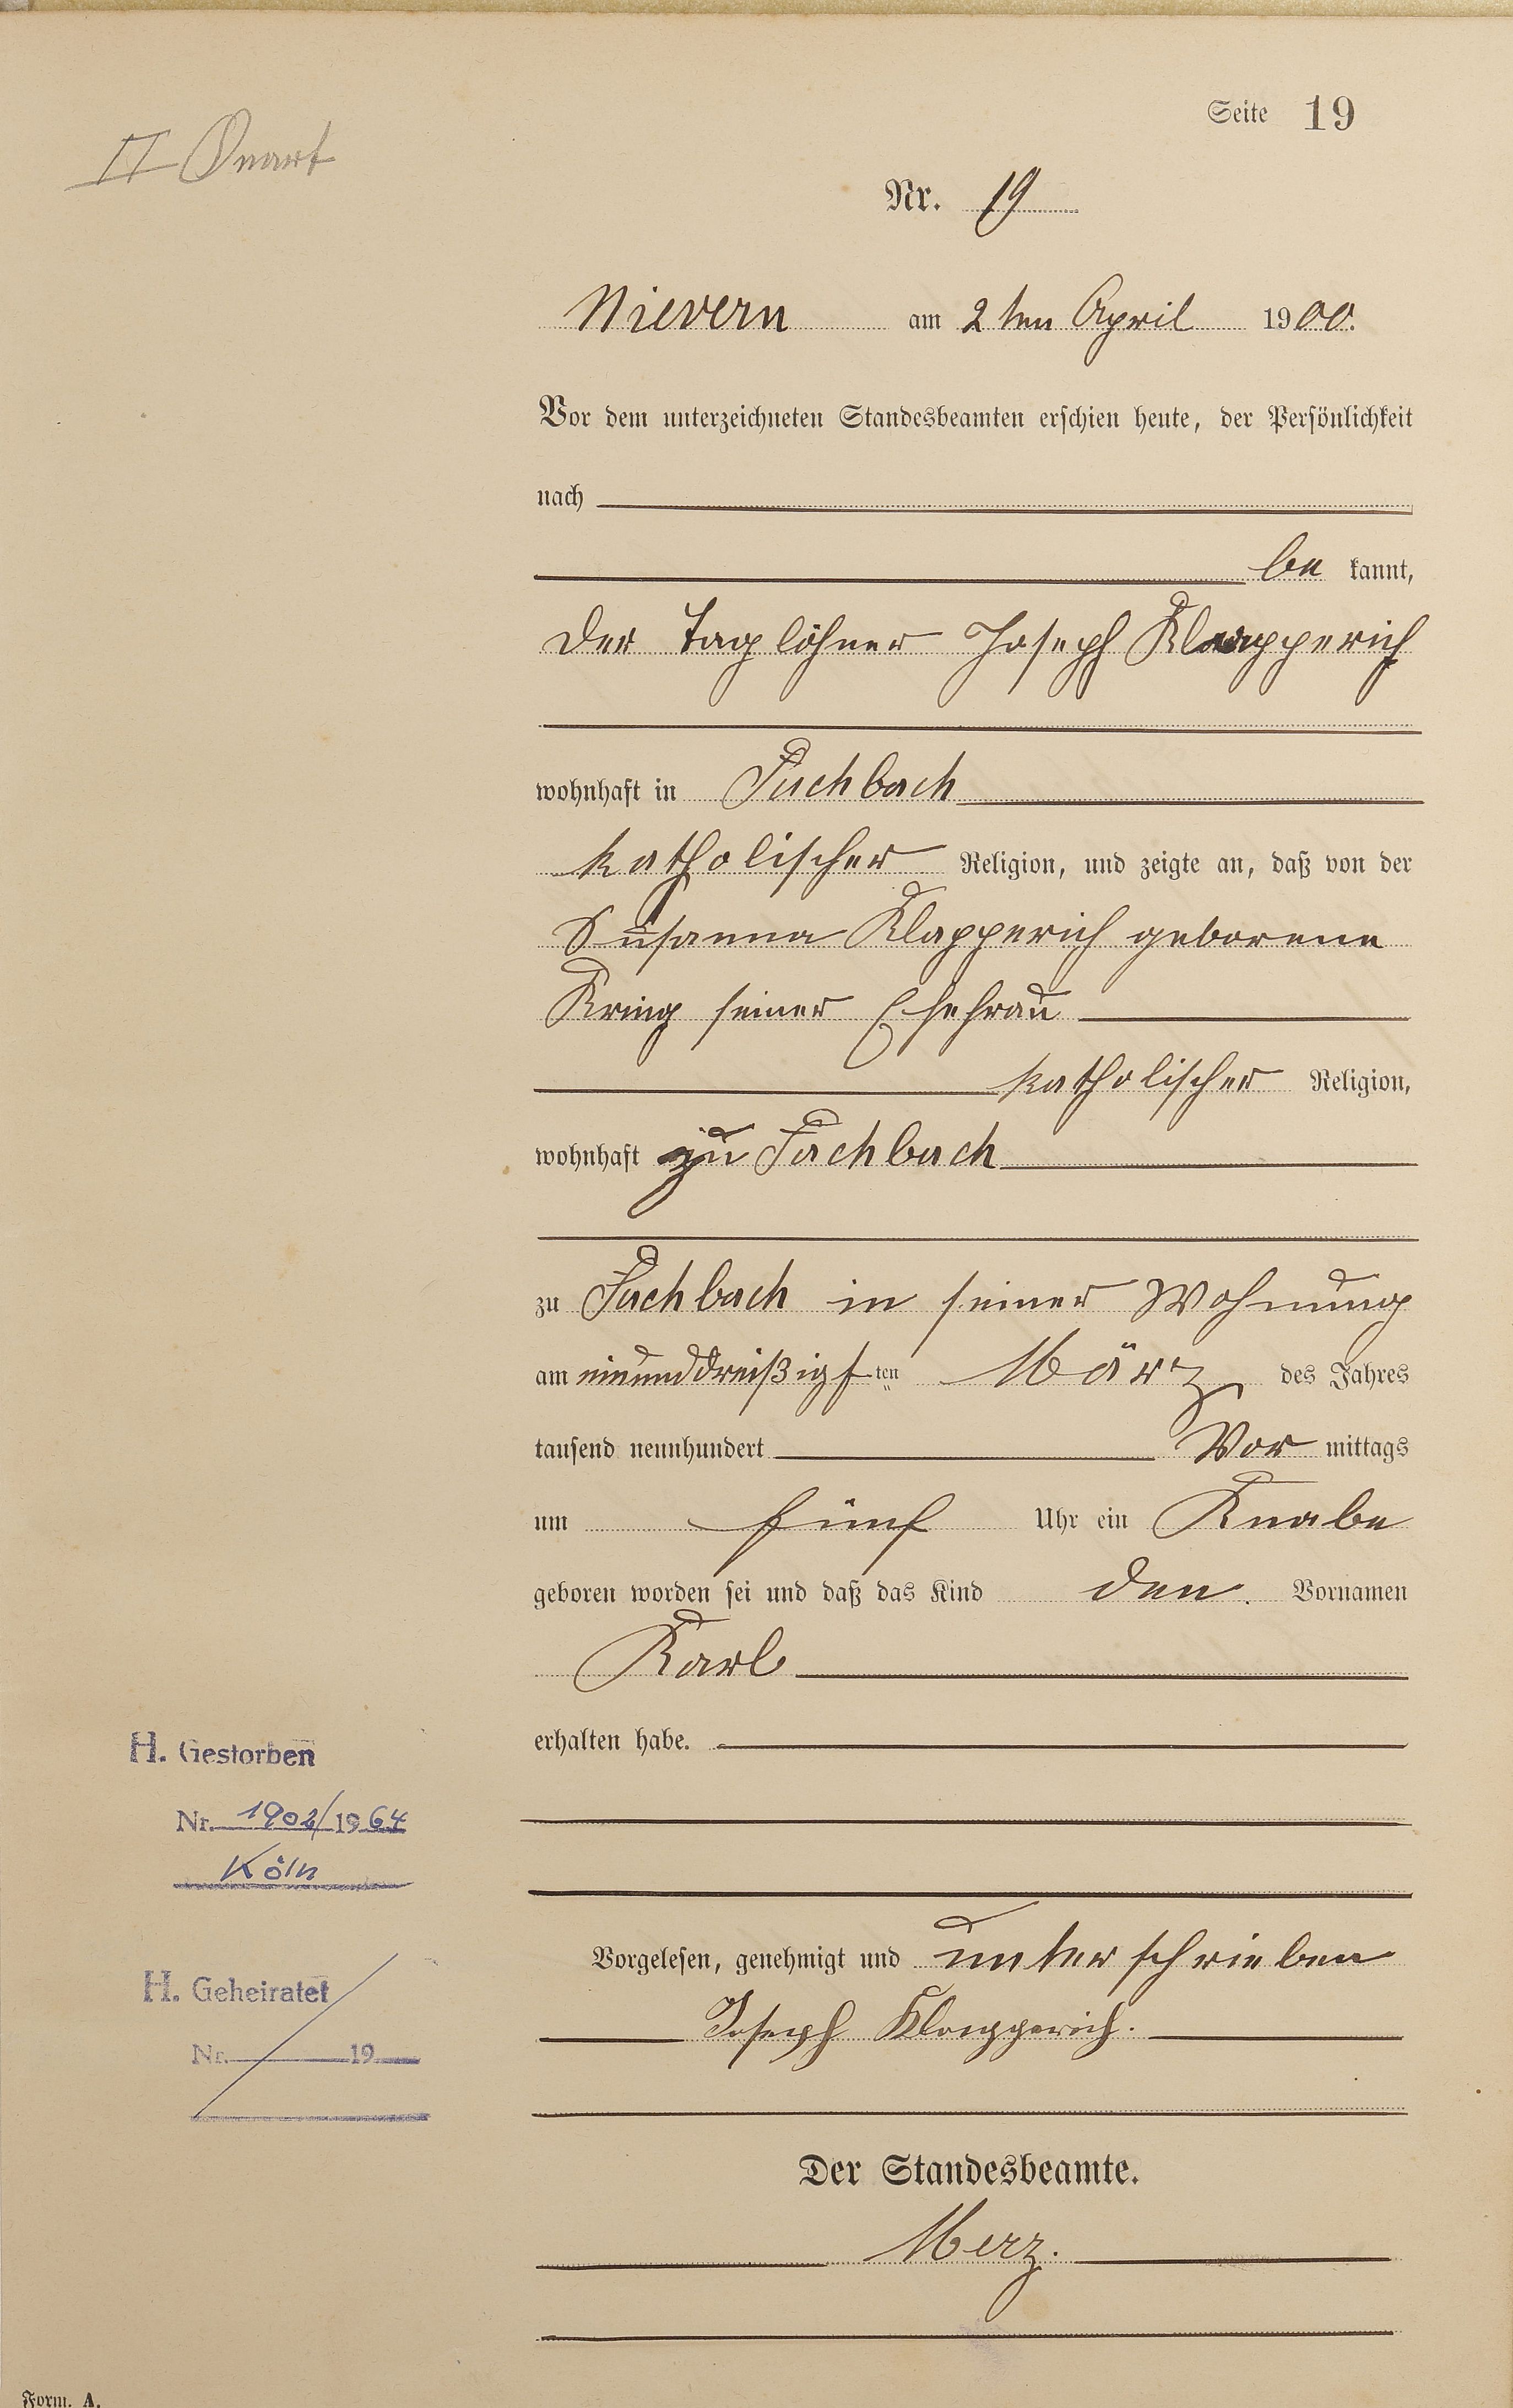 Seite 19
II Quart
Nr. 19
Nievern am 2ten April 1900.
Vor dem unterzeichneten Standesbeamten erschien heute, der Persönlichkeit
nach
be kannt,
der Taglöhner Joseph Klapperich
wohnhaft in Fachbach
katholischer Religion, und zeigte an, daß von der
Susanna Klapperich geborene
Kring seiner Ehefrau
katholischer Religion,
wohnhaft zu Fachbach
zu Fachbach in seiner Wohnung
am einunddreißigsten März des Jahres
tausend neunhundert Vor mittags
um fünf Uhr ein Knabe
geboren worden sei und daß das Kind den Vornamen
Karl
erhalten habe.
H. Gestorben
Nr. 1902/1964
Köln
Vorgelesen, genehmigt und unterschrieben
Joseph Klapperich.
H. Geheiratet
Nr. 19
Der Standesbeamte.
Merz.
Form. A.